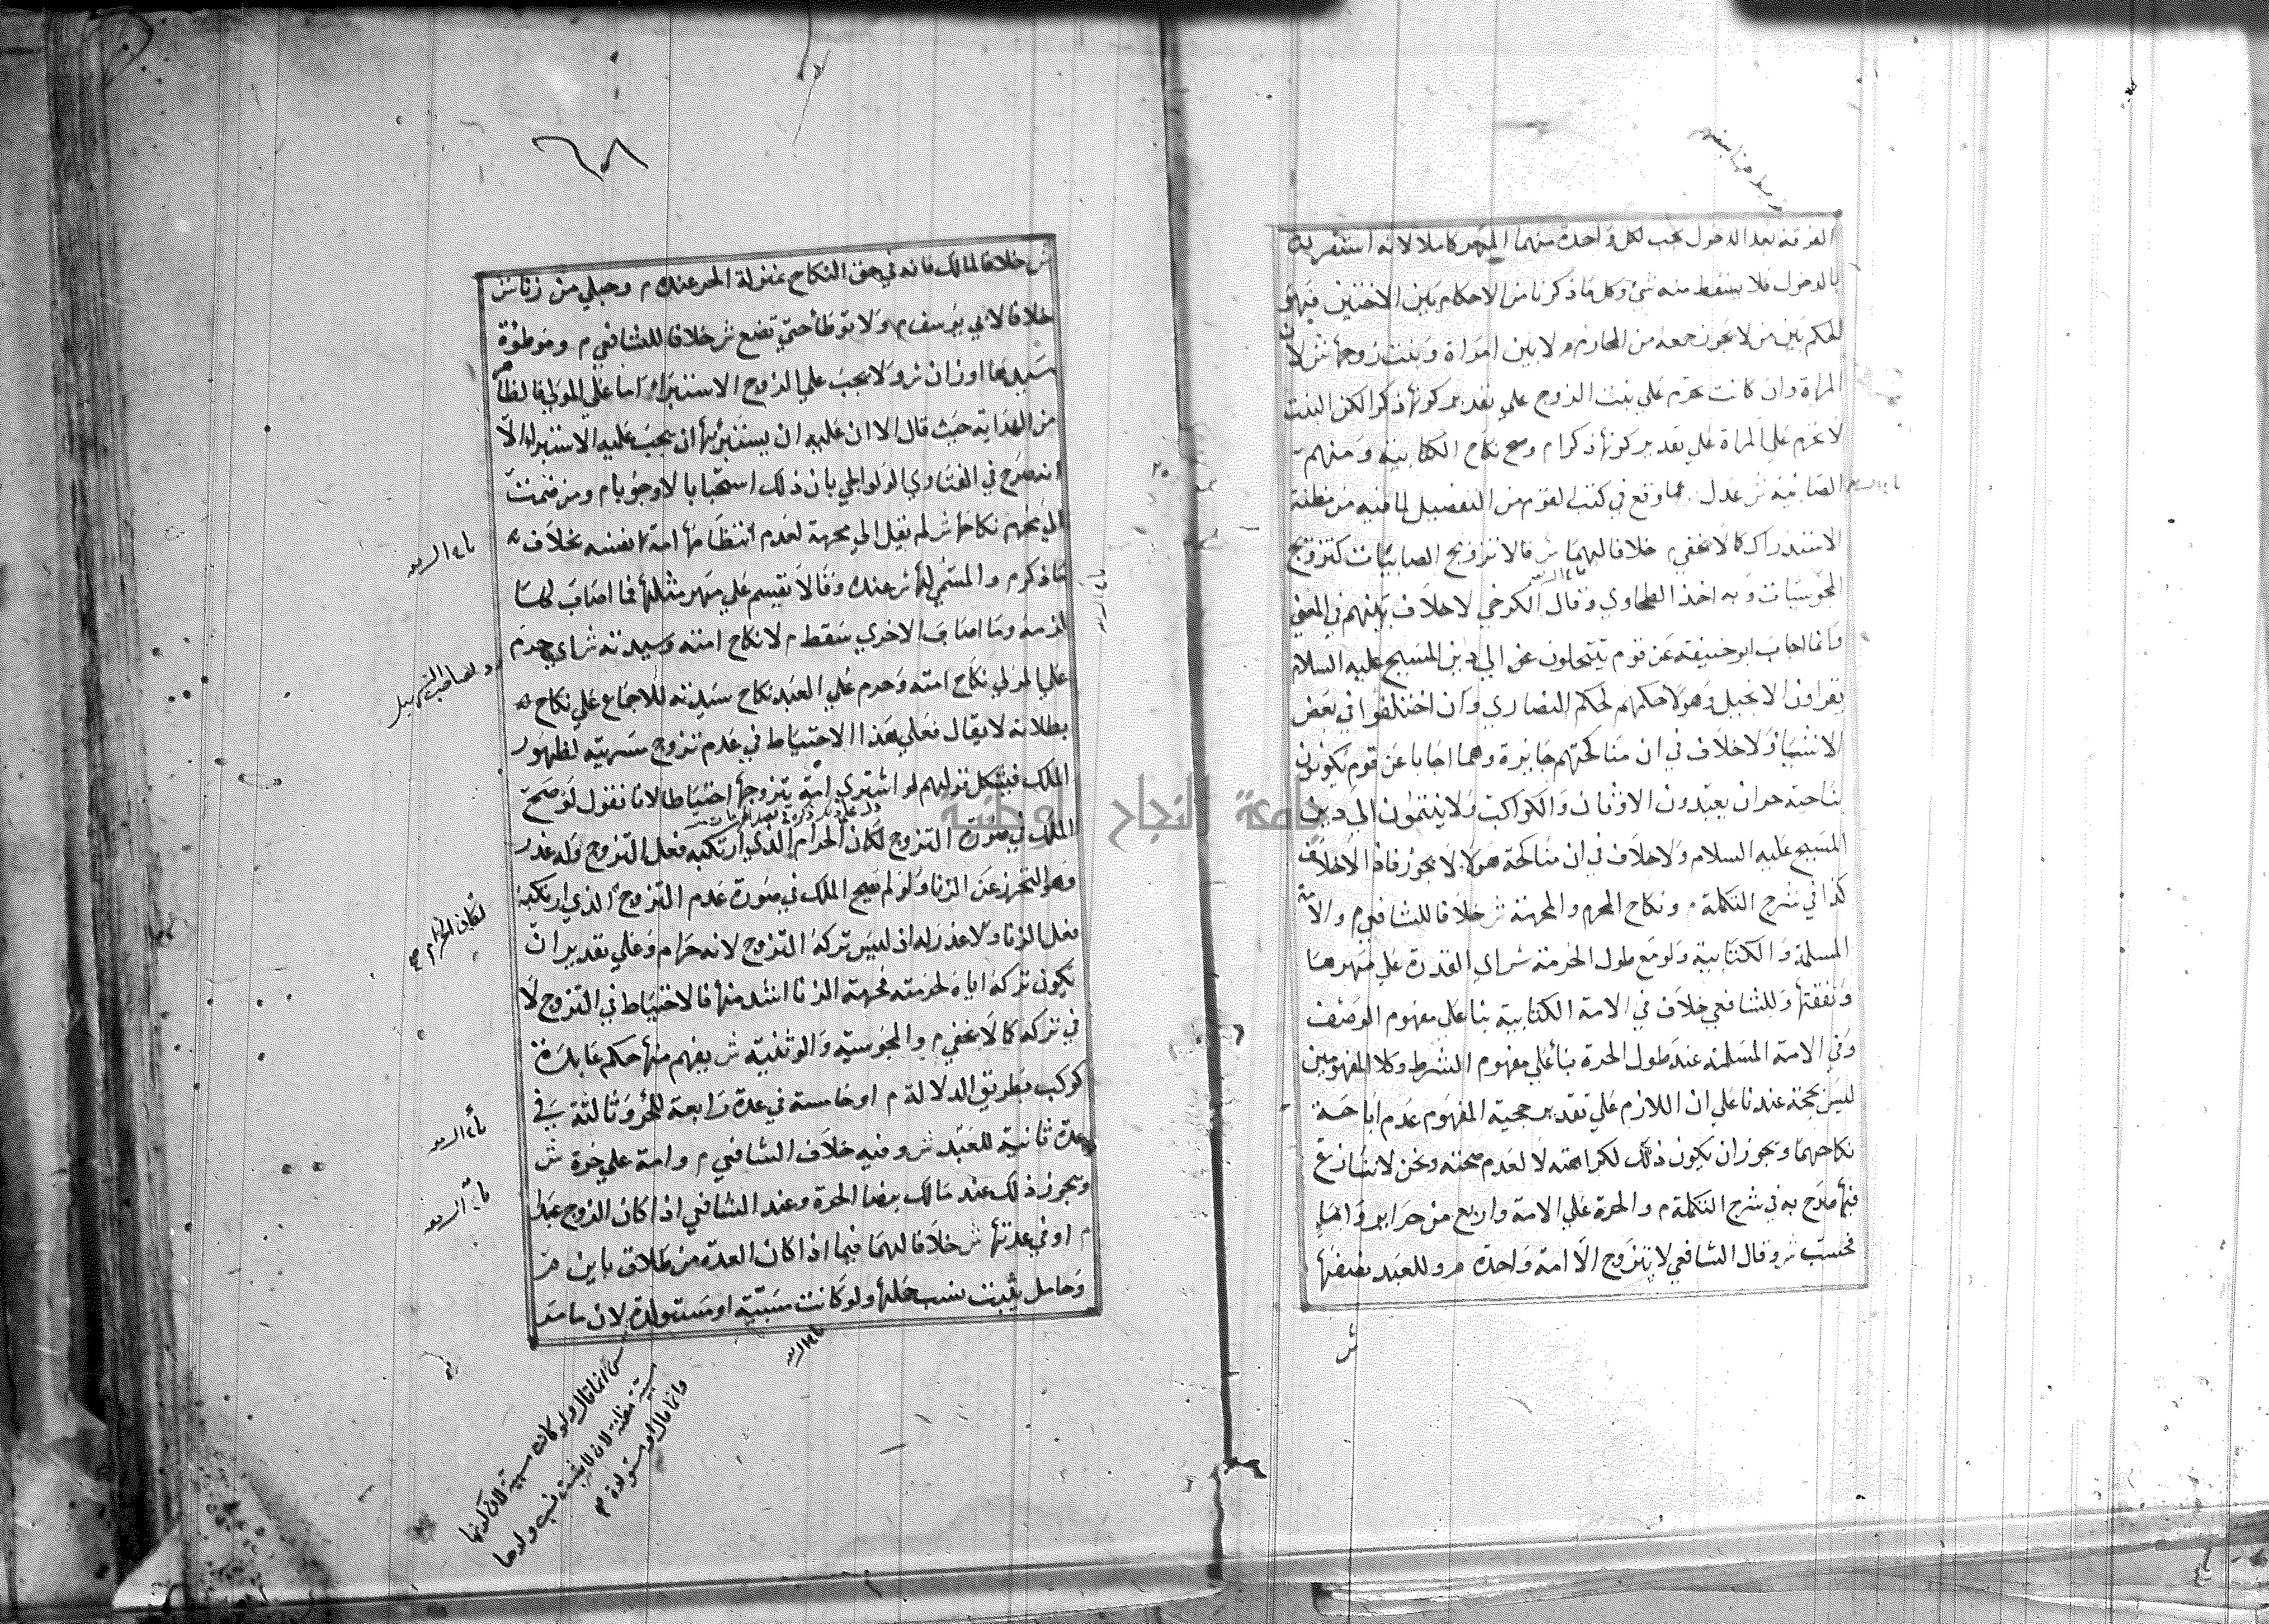 الفرقة بعد الدخول يجب لكل واحدة منهما المهر كاملا لانه استقر به
بالدخول فلا يسقط منه شئ وكل ما ذكرنا من الاحكام بين الاختين فهو
الحكم بين من لا يجوز جمعه من المحارم م ولا بين امراة وبنت زوجها ش لان
المراة وان كانت تحرم على بنت الزوج علي تقدير كونها ذكرا لكن البنت
لا تحرم على المراة على تقدير كونها ذكرا م وصح نكاح الكتابية ومنهم
الصابئية ش عدل عما وقع في كتب القوم من التفصيل لما فيه من مظنة
الاستدراك كما لا يخفي م خلافا لهما ش قالا تزويج الصابئيات كتزويج
المجوسيات وبه اخذ الطحاوي وقال الكرخي لا خلاف بينهم في المعني
وانما اجاب ابو حنيفة عن قوم ينتحلون الي دين المسيح عليه السلام
يقراون الانجيل وهولا حكمهم لحكم النصاري وان اختلفوا في بعض
الاشيا ولا خلاف في ان مناكحتهم جايزة وهما اجابا عن قوم يكونون
بناحية حران يعبدون الاوثان والكواكب ولا ينتمون الى دين
المسيح عليه السلام ولا خلاف في ان مناكحة هولا لا يجوز فاذا لا خلاف
كذا في شرح التكملة م ونكاح المحرم والمحرمة ش خلافا للشافعي م والامة
المسلمة والكتابية ولو مع طول الحرة ش اي القدرة علي مهرها
ونفقتها وللشافعي خلاف في الامة الكتابية بنا على مفهوم الوصف
وفي الامة المسلمة عند طول الحرة بنا على مفهوم الشرط وكلا المفهومين
ليس بحجة عندنا على ان اللازم على تقدير حجية المفهوم عدم اباحة
نكاحهما ويجوز ان يكون ذلك لكراهته لا لعدم صحته ونحن لا ننازع
فيها صرح به في شرح التكملة م والحرة على الامة واربع من حراير واما
فحسب ش وقال الشافعي لا يتزوج الا امة واحدة م وللعبد نصفها
ش
٦٨
ش خلافا لمالك فانه في حق النكاح بمنزلة الحر عنده م وحبلي من زنا ش
خلافا لابي يوسف م ولا توطأ حتي تضع ش خلافا للشافعي م وموطوءة
سيدها او زان ش ولا يجب علي الزوج الاستبراء اما على المولي فالظاهر
من الهداية حيث قال الا ان عليه ان يستبرئها ان يجب عليه الاستبراء الا
انه صرح في الفتاوي الولوالجي بان ذلك استحبابا لا وجوبا م ومن ضمت
الي محرم نكاحها ش لم يقل الي محرمة لعدم انتظامها امة نفسه بخلاف
ما ذكر م والمسمي لها ش عنده وقالا يقسم على مهر مثلها فما اصاب
لزمه وما اصاب الاخري سقط م لا نكاح امته وسيدته ش اي حرم
علي المولي نكاح امته وحرم علي العبد نكاح سيدته للاجماع على
بطلانه لا يقال فعلي هذا الاحتياط في عدم تزوج سريته لظهور
الملك فيشكل قولهم لو اشتري امة يتزوجها احتياطا لانا نقول لو صح
الملك في صورة التزوج لكان الحرام الذي ارتكبه فعل التزوج وله عذر
وهو التحرز عن الزنا ولو لم يصح الملك في صورة عدم التزوج الذي ارتكبه
فعل الزنا ولا عذر له اذ ليس تركه التزوج لانه حرام وعلي تقدير ان
يكون تركه اياه لحرمته فحرمة الزنا اشد منها فالاحتياط في التزوج لا
في تركه كما لا يخفي م والمجوسية والوثنية ش يفهم منها حكم عابدة
كوكب بطريق الدلالة م او خامسة في عدة رابعة للحر وثالثة في
عدة ثانية للعبد ش وفيه خلاف الشافعي م وامة على حرة ش
ويجوز ذلك عند مالك برضا الحرة وعند الشافعي اذا كان الزوج عبدا
م او في عدتها ش خلافا لهما فيما اذا كان العدة من طلاق باين م
وحامل يثبت نسب حملها ولو كانت مسبية او مستولدة لان ما
لكان الحرام صح
انما قال ولو كانت مسبية لان كونها
مسبية مظنة لان لا يثبت نسب ولدها
وانما قال او مستولدة
جامعة النجاح الوطنية